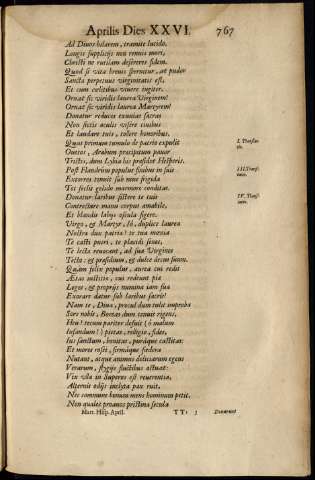 Aprilis Dies XXVI. 767
Ad Divos hilarem, tramite lucido.
Longis supplicijs non remnis mori,
Christi ne rutilam desereres fidem.
Quod si vita brevis spernitur, at pudor
Sancta perpetuus virginitatis est,
Et cum cælitibus vivere iugiter.
Ornat sic viridis laurea Virginem!
Ornat sic viridis laurea Martyrem!
Donatur reduces exuvias sacras
Non siccis oculis visere civibus
Et laudare tuis, tollere honoribus.
Quas primum tumulo de patrio expulit
I. Translatio.
Oneros, Arabum præcipitum pavor
Tristes, dum Lybia his præsidet Hesperis.
Post Flandrius populus finibus in suis
III. Translatio.
Extorres tenuit sub nive frigida
Tot seclis gelido marmore conditas.
Donatur laribus sistere te tuis
IV. Translatio.
Contrectare manu corpus amabile,
Et blandis labijs oscula figere.
Virgo, & Martyr, Iô, duplice laurea
Nostra dux patria! te tua mœnia
Te casti pueri, te placidi sinus,
Te lecta revocant, ad sua Virgines
Tecta: & præsidium, & dulce decus suum.
Quàm felix populus, aurea cui redit
Ætas auspitio, cui redeunt pia
Leges, & proprijs numina iam sua
Exorare datur sub laribus sacris!
Nam te, Diva, procul dum tulit improba
Sors nobis, Boreas dum tenuit rigens,
Heu! tecum pariter desuit (ò malum
Infandum!) pietas, religio, fides,
Ius sanctum, bonitas, puráque castitas:
Et mores rosei, firmáque fœdera
Nutant, atque animus deliciarum egens
Verarum, stygijs fluctibus æstuat:
Vix ulla in Superos est reverentia,
Alternis odijs inclyta pax ruit.
Nec commune bonum mens hominum petit.
Non quales proavos pristina secula
Mart. Hisp. April. TTt 3 Donarunt